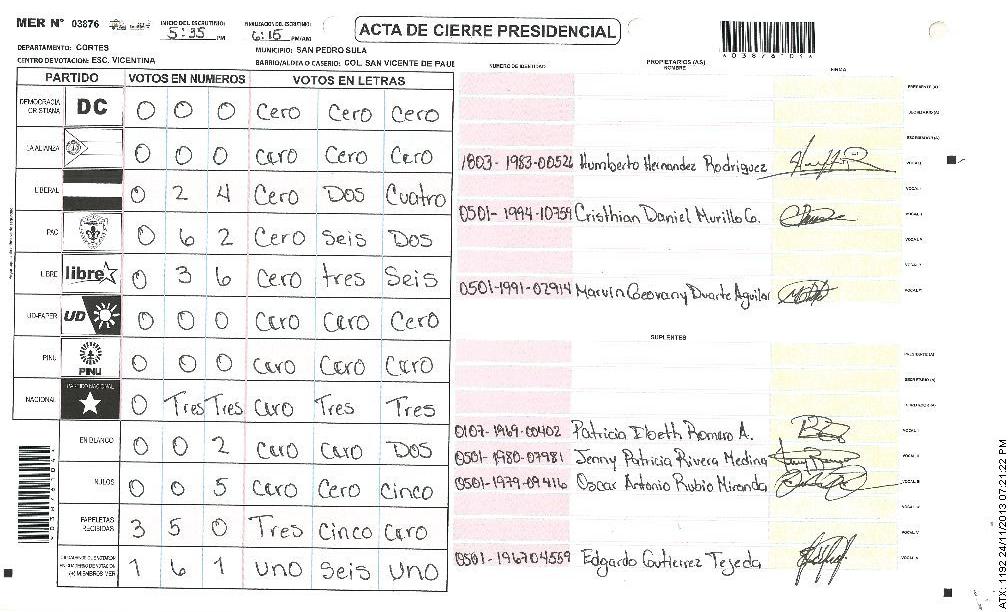 MER N° 03876 INICIO DEL ESCRUTINIO: 5:35 PM FINALIZACION DEL ESCRUTINIO: 6:15 PM/AM
ACTA DE CIERRE PRESIDENCIAL
*03876101*
DEPARTAMENTO: CORTES MUNICIPIO: SAN PEDRO SULA
CENTRO DE VOTACION: ESC. VICENTINA BARRIO/ALDEA O CASERIO: COL. SAN VICENTE DE PAUL
PARTIDO VOTOS EN NUMEROS VOTOS EN LETRAS
DEMOCRACIA CRISTIANA DC 0 0 0 Cero Cero Cero
LA ALIANZA 0 0 0 Cero Cero Cero
LIBERAL 0 2 4 Cero Dos Cuatro
PAC 0 6 2 Cero Seis Dos
LIBRE libre 0 3 6 Cero tres Seis
UD-FAPER UD 0 0 0 Cero Cero Cero
PINU PINU 0 0 0 Cero Cero Cero
NACIONAL PARTIDO NACIONAL 0 Tres Tres Cero Tres Tres
EN BLANCO 0 0 2 Cero Cero Dos
NULOS 0 0 5 Cero Cero Cinco
PAPELETAS RECIBIDAS 3 5 0 Tres Cinco Cero
(+) MIEMBROS MER 1 6 1 Uno Seis Uno
NUMERO DE IDENTIDAD PROPIETARIOS (AS) NOMBRE FIRMA
PRESIDENTE (A)
SECRETARIO (A)
ESCRUTADOR (A)
1803-1983-00526 Humberto Hernandez Rodriguez VOCAL I
0501-1994-10759 Cristhian Daniel Murillo G.
0501-1991-02914 Marvin Geovany Duarte Aguilar
SUPLENTES
PRESIDENTE (A)
SECRETARIO (A)
0107-1969-00402 Patricia Ilbeth Romero A. VOCAL I
0501-1980-07981 Jenny Patricia Rivera Medina VOCAL II
0501-1979-09416 Oscar Antonio Rubio Miranda VOCAL III
0501-1967 04559 Edgardo Gutierrez Tejeda
ATX: 1192 24/11/2013 07:21:22 PM